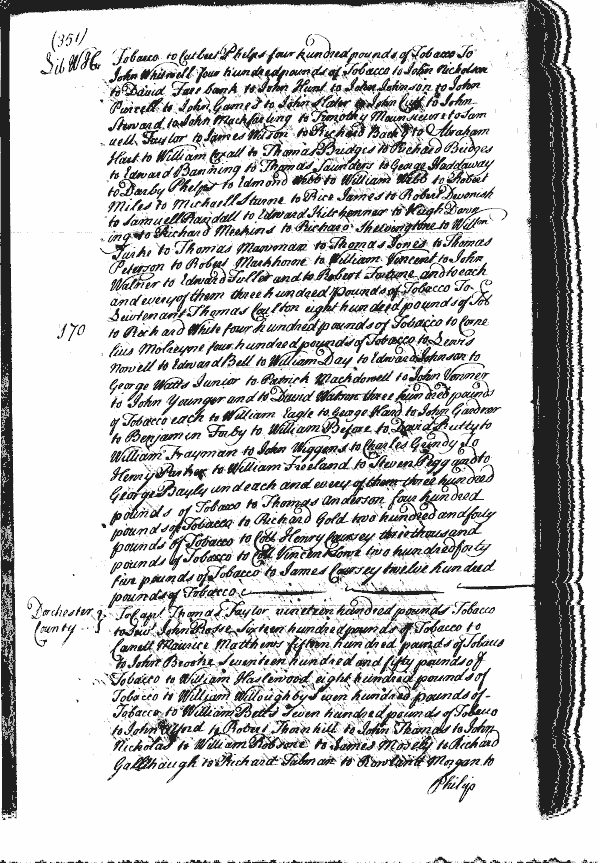 (351)
Lib W H C
Tobacco to Cutbert Phelps four hundred pounds of Tobacco To
John Whitwell four hundred pounds of Tobacco to John Nicholson
to David Fare bank to John Hunt to John Johnson to John
Purcell to John Games to John Slater to John to John
Steward to John Mackfarling to Timothy to Sam
uell Taylor to James Wilson to Richard to Abraham
Hart to William to Thomas Bridges to Richard Bridges
to Edward Banning to Thomas Saunders to George Haddaway
to Darby Phelps to Edmond Webb to William Webb to Robert
Miles to Michaell to Rice James to Robert Devonish
to Samuell Randall to Edward to Hugh
ing to Richard Meekins to Richard to
to Thomas to Thomas Jones to Thomas
Peterson to Robert Mackhorne to William Vincent to John
Walner to Edward Fuller and to Robert Fortune and to each
and every of them three hundred pounds of Tobacco To
Leiutenant Thomas Coulton eight hundred pounds of Tob
170
to Richard White four hundred pounds of Tobacco to Corne
lius four hundred pounds of Tobacco to Lewis
Nowell to Edward Bell to William Day to Edward Johnson to
George Watts Junior to Patrick Mackdowell to John
to John Younger and to David Watson three hundred pounds
of Tobacco each to William Eagle to George Hand to John Gardner
to Benjamin to William Before to David to
William Frayman to John Wiggens to Charles Grindy To
Henry Parker to William Freeland to Steven Pegg and to
George Bayly und each and every of them three hundred
pounds of Tobacco to Thomas Anderson four hundred
pounds of Tobacco to Richard Gold two hundred and forty
pounds of Tobacco to Coll Henry Coursey three thousand
pounds of Tobacco to Coll Vincent Lowe two hundred forty
five pounds of Tobacco to James Coursey twelve hundred
pounds of Tobacco
Dorchester
County
To Capt Thomas Taylor nineteen hundred pounds Tobacco
to John Sixteen hundred pounds of Tobacco to
Maurice Matthews fifteen hundred pounds of Tobacco
to John Brooke Seventeen hundred and fifty pounds of
Tobacco to William Haslewood eight hundred pounds of
Tobacco to William Willoughby Seven hundred pounds of
Tobacco to William Betts Seven hundred pounds of Tobacco
to John Alford to Robert Thornhill to John Thomas to John
Nicholas to William Robsone to James Mosely to Richard
Gallthaugh to Richard Talman to Rowland Morgan to
Philip